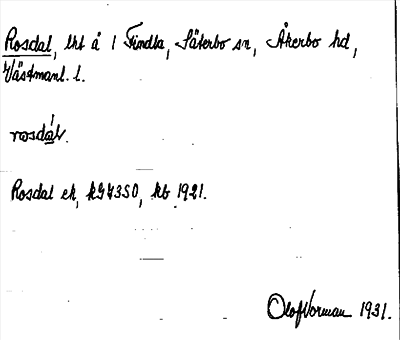 Rosdal, lht å 1 Findla, Säterbo sn, Åkerbo hd,
Västmanl. l.
rosdàl.
Rosdal ek, kb 1921.
Olof Norman 1931.